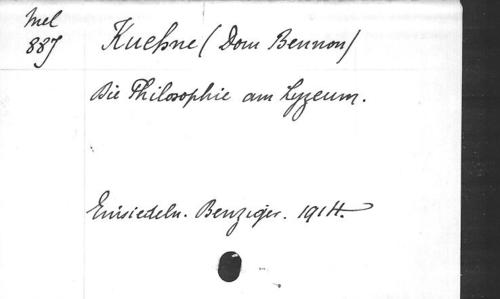 Mel
887
Kuehne (Dom Bennon)
Die Philosophie am Lyzeum.
Einsiedeln. Benziger. 1914.